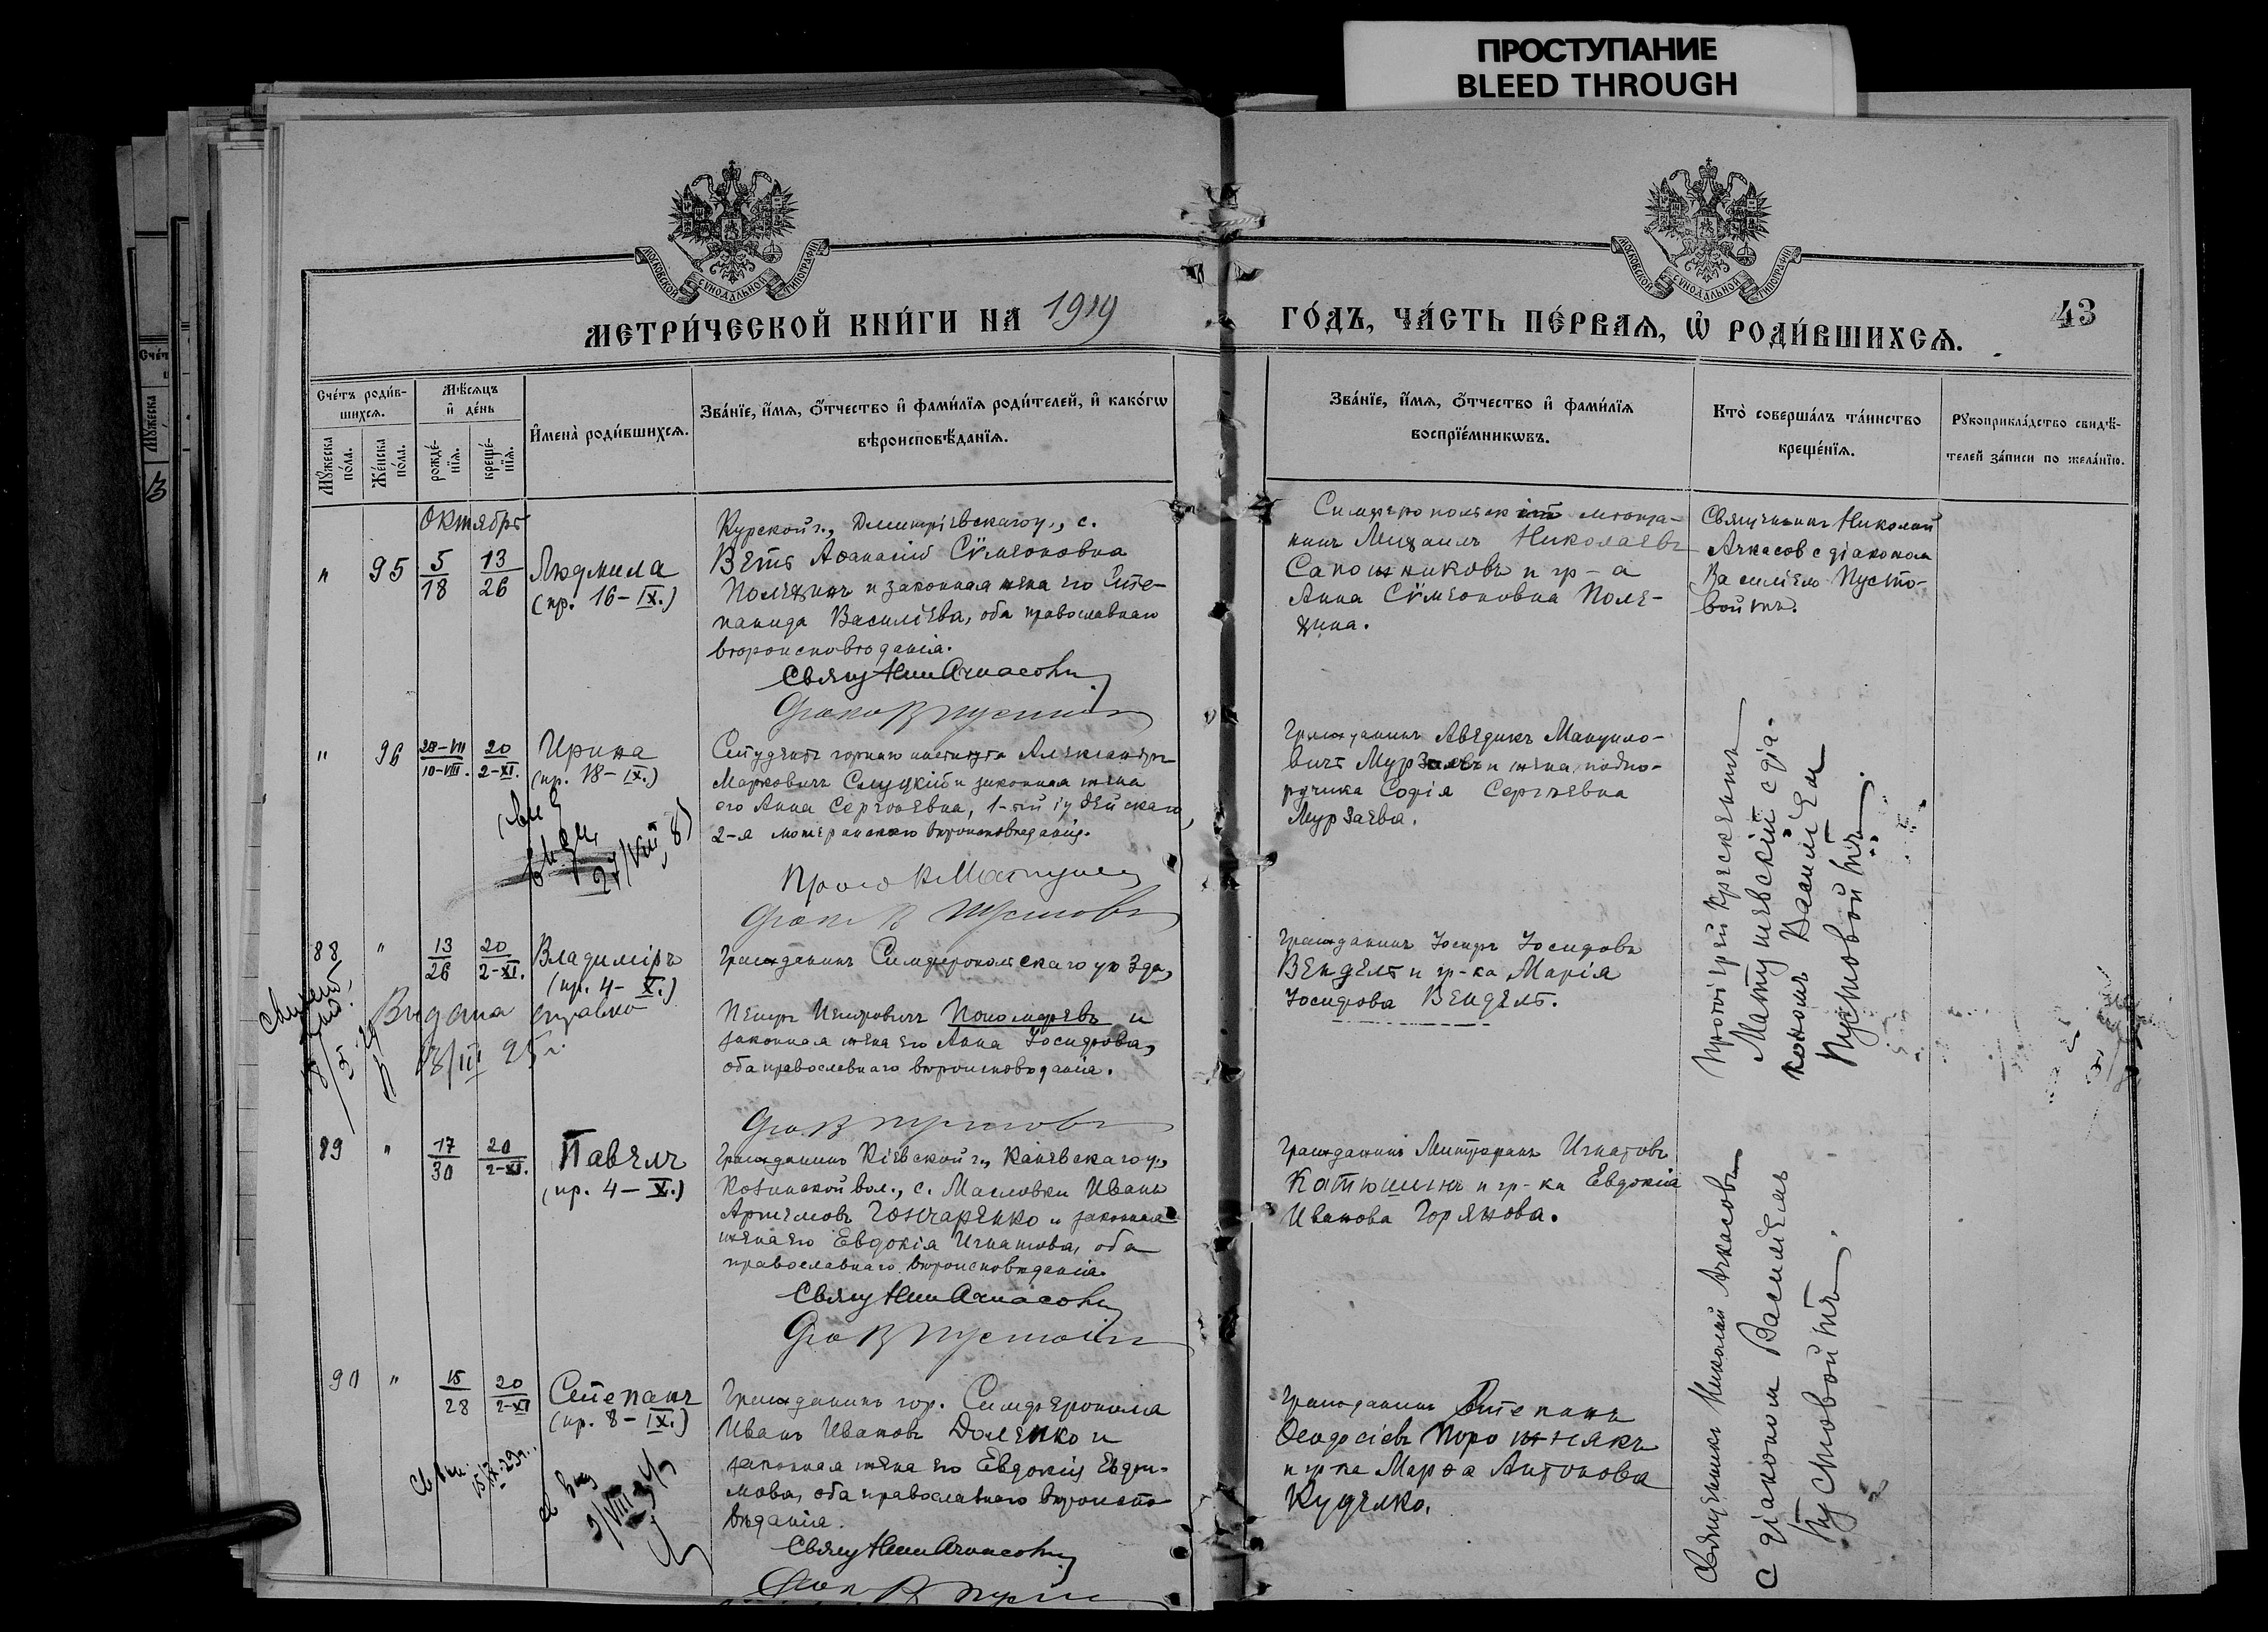 ПРОСТУПАНИЕ
BLEED THROUGH
МОСКОВСКОЙ СѴНОДАЛЬНОЙ ТИПОГРАФІИ
МОСКОВСКОЙ СѴНОДАЛЬНОЙ ТИПОГРАФІИ
МЕТРИ́ЧЕСКОЙ КНИ́ГИ НА 1919
ГО́ДЪ, ЧА́СТЬ ПЕ́РВАѦ, Ѡ҆ РОДИ́ВШИХСѦ.
43
Сче́тъ роди́в-
шихсѧ.
Мѣ́сѧцъ
и҆ де́нь
Мꙋ́жеска
по́ла.
Же́нска
по́ла.
рожде́-
нїѧ.
креще́-
нїѧ.
И҆мена̀ роди́вшихсѧ.
Зва́нїе, и҆́мѧ, ѻ҆́тчество и҆ фами́лїѧ роди́телей, и҆ како́гѡ
вѣроисповѣ́данїѧ.
Зва́нїе, и҆́мѧ, ѻ҆́тчество и҆ фами́лїѧ
воспрїе́мникѡвъ.
Кто̀ соверша́лъ та́инство
креще́нїѧ.
Рꙋкоприкла́дство свидѣ́-
телей за́писи по жела́нїю.
Октябрь
" 95 5/18 13/26 Людмила
(пр. 16-IX.)
Курской г., Дмитріевскаго у., с.
Ветъ Аѳанасій Сѵмеоновна
Полехинъ и законная жена его Сте-
панида Василіева, оба православнаго
вѣроисповѣданія.
Свящ Ник Ачкасовъ
Симферопольскій мѣща-
нинъ Михаилъ Николаевъ
Сапожниковъ и гр-а
Анна Сѵмеоновна Поле-
хина.
Священникъ Николай
Ачкасов с діаконом
Василіем Пусто-
войтъ.
" 96 28-VII/10-VIII. 20/2-XI. Ирина
(пр. 18-IX.)
27/VIII
Студентъ горнаго института Александръ
Марковичъ Слуцкій и законная жена
его Анна Сергѣевна, 1-ый іудейскаго,
2-я лютеранскаго вѣроисповѣданія.
Гражданинъ Аведикъ Мануило-
вичъ Мурзаевъ и жена подпо-
ручика Софія Сергѣевна
Мурзаева.
Протоіерей Крескентъ
Матушевскій с діа-
кономъ Василіем
Пустовойтъ.
88 " 13/26 20/2-XI. Владиміръ
(пр. 4-X.)
Видана справка
Гражданинъ Симферопольскаго уѣзда,
Петръ Петровичъ Пономаревъ и
законная жена его Анна Іосифова,
оба православнаго вѣроисповѣданія.
Гражданинъ Іосифъ Іосифовъ
Вендель и гр-ка Марія
Іосифова Вендель.
89 " 17/30 20/2-XI. Павелъ
(пр. 4-X.)
Гражданинъ Кіевской г., Каневскаго у.,
Козинской вол., с. Масловки Иванъ
Артемовъ Гончаренко и законная
жена его Евдокія Игнатова, оба
православнаго вѣроисповѣданія.
Свящ Ник Ачкасовъ
Гражданинъ Митрофанъ Игнатовъ
Катюшинъ и гр-ка Евдокія
Иванова Горянова.
Священникъ Николай Ачкасовъ
с діаконом Василіемъ
Пустовойтъ.
90 " 15/28 20/2-XI Степанъ
(пр. 8-IX.)
Гражданинъ гор. Симферополя
Иванъ Ивановъ Доленко и
законная жена его Евдокія Евфи-
мова, оба православнаго вѣроиспо-
вѣданія.
Свящ Ник Ачкасовъ
Гражданинъ Степанъ
Ѳеодосіевъ Порожнякъ
и гр-ка Марѳа Антонова
Куделко.